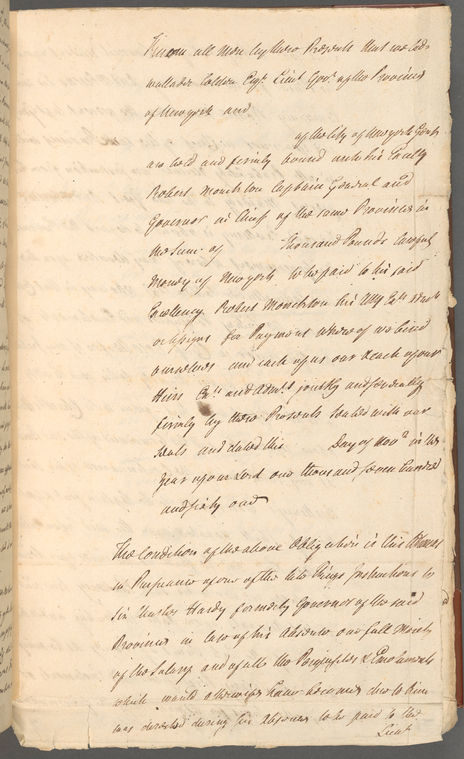 Know all men by these Presents that we Cad-
wallader Colden Esqr. Lieut Govr. of the Province
of New york and
of the City of New york Gent.
are held and firmly bound unto his Excelly
Robert Monckton Captain General and
Governor in Chief of the same Province in
the Sum of Thousand Pounds lawful
Money of New york to be paid to his said
Excellency Robert Monckton his
or assigns for Payment whereof we bind
ourselves and each of us our & each of our
Heirs Exrs. and Admrs. jointly and severally
firmly by these Presents Sealed with our
Seals and dated this Day of Novr. in the
Year of our Lord one thousand seven hundred
and sixty one
The Condition of the above Obligation is this Whereas
in Pursuance of one of the late Kings Instructions to
Sir Charles Hardy formerly Governor of the said
Province in case of his absence one full Moiety
of the Salary and of all the Perquisites & Emoluments
which would otherwise have become due to him
was directed during his absence to be paid to the
Lieut